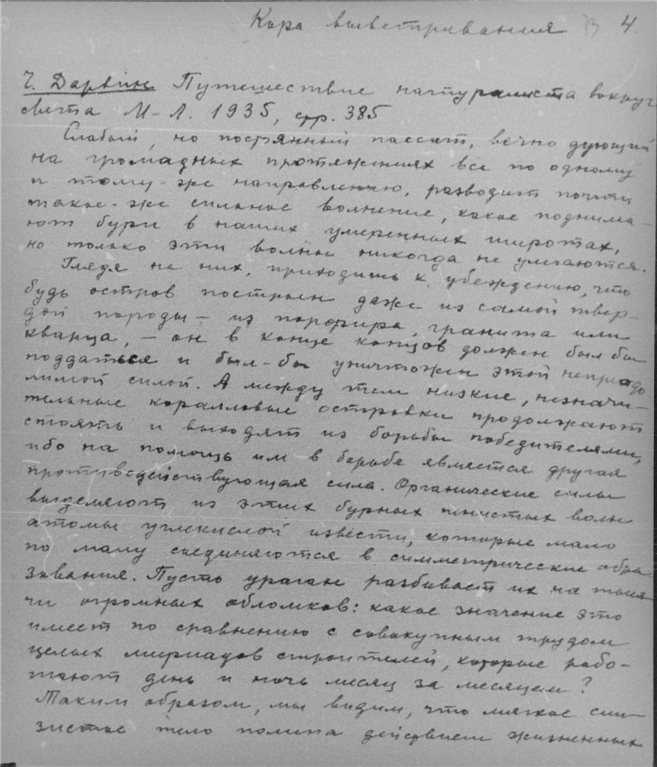 Кора выветривания 4.
Ч. Дарвин Путешествие натуралиста вокруг
света М-Л. 1935, стр. 385
Слабый, но постоянный пассат, вечно дующий
на громадных протяжениях все по одному
и тому-же направлению, разводит почти
такое-же сильное волнение, какое поднима-
ют бури в наших умеренных широтах,
но только эти волны никогда не улегаются.
Глядя на них, приходишь к убеждению, что
будь остров построен даже из самой твер-
дой породы – из порфира, гранита или
кварца, – он в конце концов должен был бы
поддаться и был-бы уничтожен этой непреодо
лимой силой. А между тем низкие, незначи-
тельные коралловые островки продолжают
стоять и выходят из борьбы победителями,
ибо на помощь им в борьбе является другая
противодействующая сила. Органические силы
выделяют из этих бурных пенистых волн
атомы углекислой извести, которые мало
по малу соединяются в симметрические обра
зования. Пусть ураган разбивает их на тыся
чи огромных обломков: какое значение это
имеет по сравнению с совокупным трудом
целых мириадов строителей, которые рабо-
тают день и ночь месяц за месяцем?
Таким образом, мы видим, что мягкое сли
зистое тело полипа действием жизненных